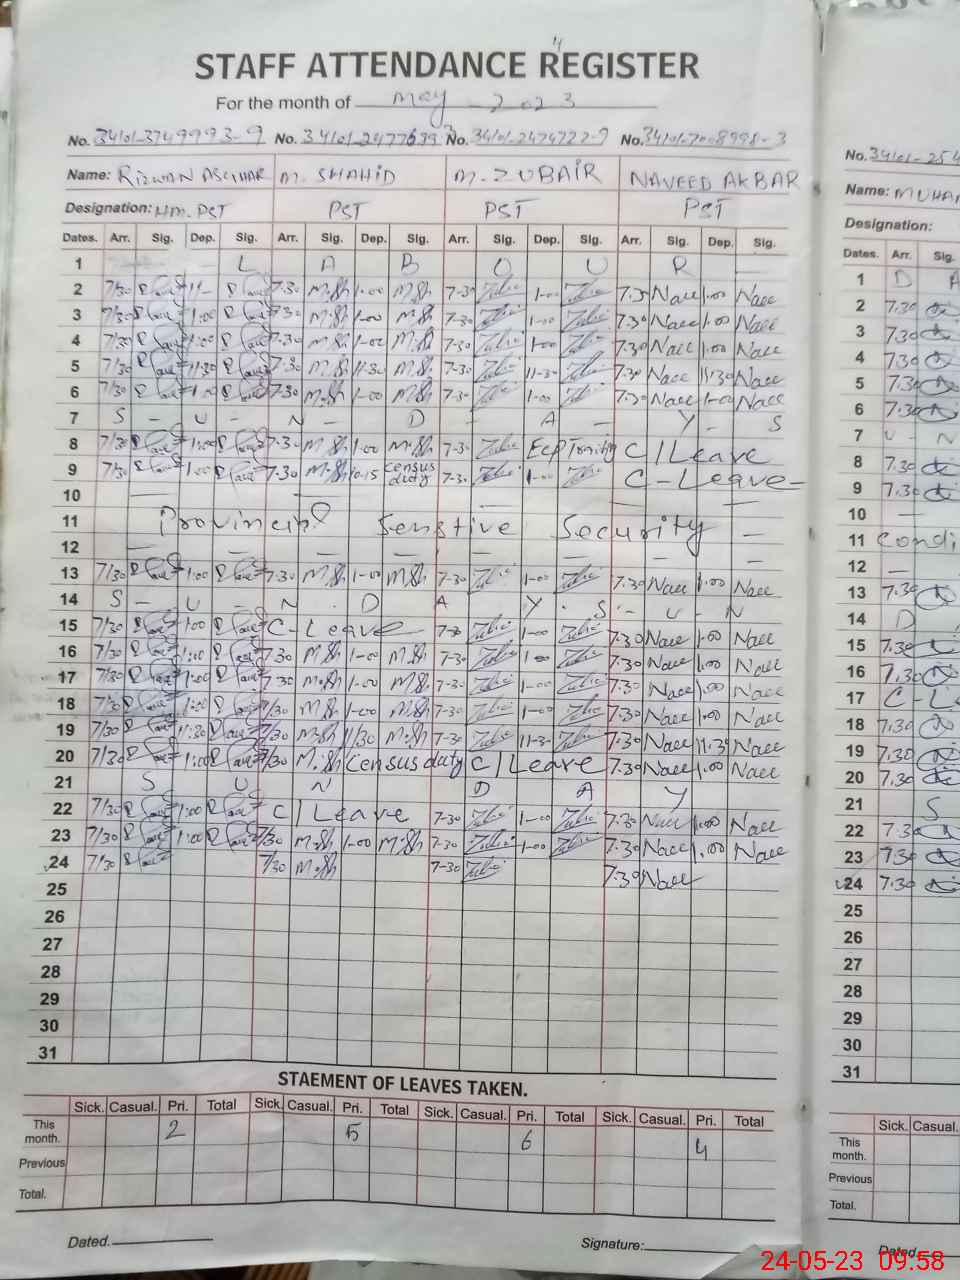 STAFF ATTENDANCE REGISTER
For the month of May 2023
No. 34101-3749993-9 No. No. 34101-2474722-9 No. 34101-7008998-3
Name: RIZWAN ASGHAR M. SHAHID M. ZUBAIR NAVEED AKBAR
Designation: HM. PST PST PST PST
Dates. Arr. Sig. Dep. Sig. Arr. Sig. Dep. Sig. Arr. Sig. Dep. Sig. Arr. Sig. Dep. Sig.
1 L A B O U R
2 7/30 7-30 M.Sh 1-00 M.Sh 7-30 1-00 7.30 Nace 1.00 Nace
3 7/30 1:00 7-30 M.Sh 1-00 M.Sh 7-30 1-00 7.30 Nace 1.00 Nace
4 7/30 1:00 7-30 M.Sh 1-00 M.Sh 7-30 1-00 7.30 Nace 1.00 Nace
5 7/30 11:30 7-30 M.Sh 11-30 M.Sh 7-30 11-30 7.30 Nace 11.30 Nace
6 7/30 1:00 7-30 M.Sh 1-00 M.Sh 7-30 1-00 7.30 Nace 1-00 Nace
7 S - U - N - D - A - Y - S
8 7/30 1:00 7-30 M.Sh 1-00 M.Sh 7-30 C/Leave
9 7/30 1:00 7-30 M.Sh 10-15 Census duty 7-30 1-00 C-Leave-
10
11 Provincial Senstive Security -
12
13 7/30 1:00 7-30 M.Sh 1-00 M.Sh 7-30 1-00 7.30 Nace 1.00 Nace
14 S - U - N . D A Y . S - U - N
15 7/30 1:00 C-Leave 7-30 1-00 7.30 Nace 1.00 Nace
16 7/30 1:00 7-30 M.Sh 1-00 M.Sh 7-30 1-00 7.30 Nace 1.00 Nace
17 7/30 1:00 7-30 M.Sh 1-00 M.Sh 7-30 1-00 7.30 Nace 1.00 Nace
18 7/30 1:00 7/30 M.Sh 1-00 M.Sh 7-30 1-00 7.30 Nace 1.00 Nace
19 7/30 11:30 7/30 M.Sh 11/30 M.Sh 7-30 11-30 7.30 Nace 11.30 Nace
20 7/30 1:00 7/30 M.Sh Census duty C/Leave 7.30 Nace 1.00 Nace
21 S U N D A Y
22 7/30 1:00 C/Leave 7-30 1-00 7.30 Nace 1.00 Nace
23 7/30 1:00 7/30 M.Sh 1-00 M.Sh 7-30 1-00 7.30 Nace 1.00 Nace
24 7/30 7/30 M.Sh 7-30 7.30 Nace
25
26
27
28
29
30
31
STAEMENT OF LEAVES TAKEN.
Sick. Casual. Pri. Total Sick. Casual. Pri. Total Sick. Casual. Pri. Total Sick. Casual. Pri. Total
This month. 2 5 6 4
Previous
Total.
Dated. Signature:
No. 34101-254
Name: MUHA
Designation:
Dates. Arr. Sig.
1 D A
2 7.30
3 7.30
4 7.30
5 7.30
6 7.30
7 U - N
8 7.30
9 7.30
10
11 Condi
12
13 7.30
14 D
15 7.30
16 7.30
17 C-Le
18 7.30
19 7.30
20 7.30
21 S
22 7.30
23 7.30
24 7.30
25
26
27
28
29
30
31
Sick. Casual.
This month.
Previous
Total.
Dated.
24-05-23 09.58